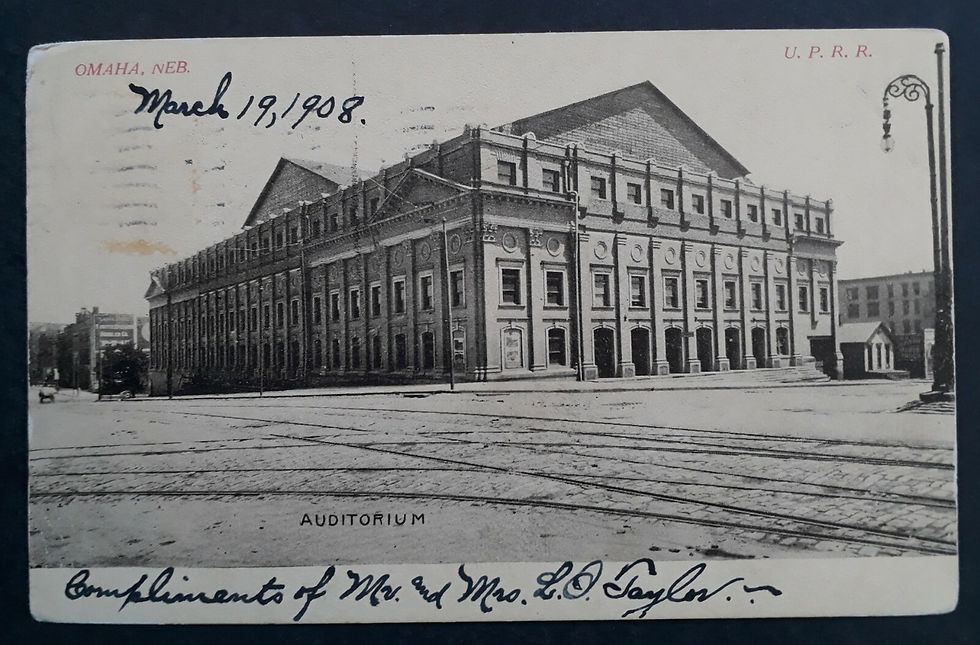 OMAHA, NEB.
U. P. R. R.
March 19, 1908.
AUDITORIUM
Compliments of Mr. and Mrs. L. O. Taylor. ~